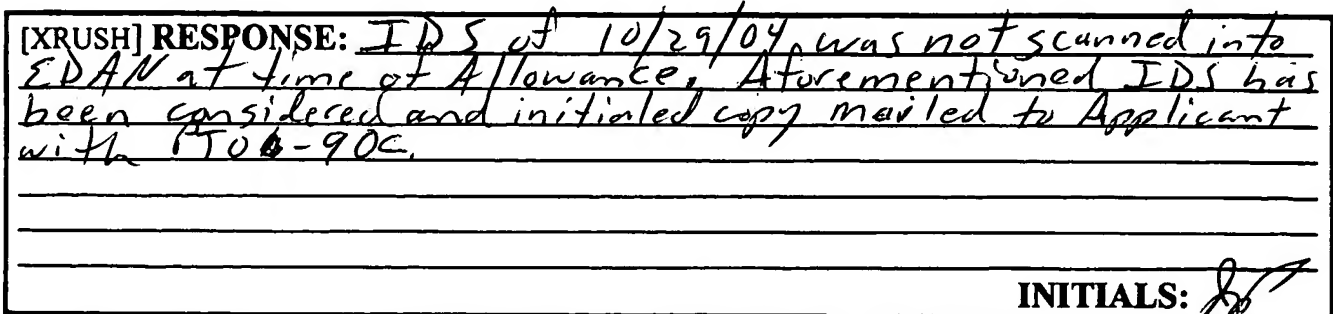 [XRUSH] RESPONSE: IDS of 10/29/04, was not scanned into
EDAN at time of Allowance. Aforementioned IDS has
been considered and initialed copy mailed to Applicant
with PTO-90C.
INITIALS: